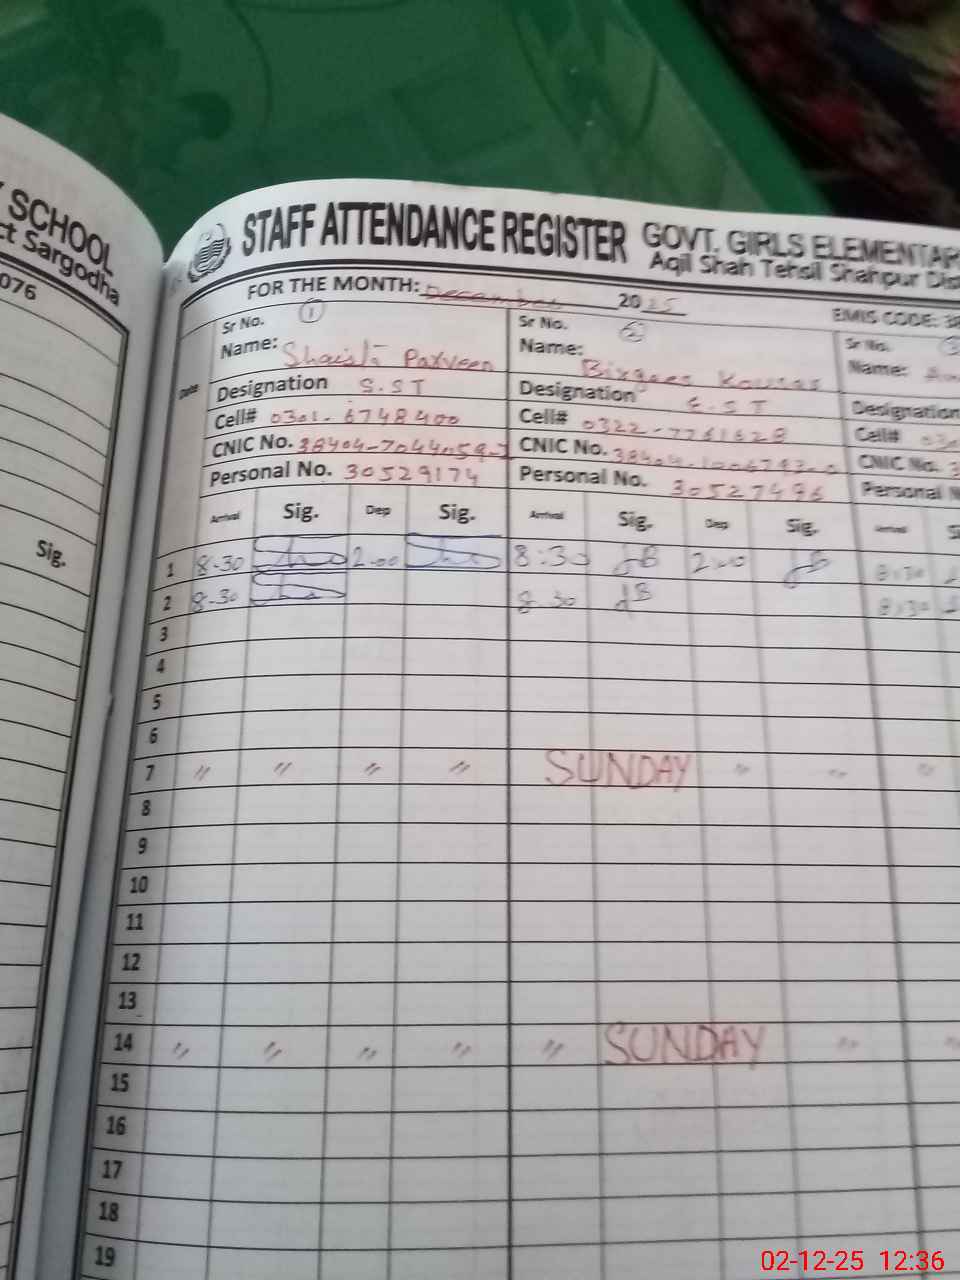 SCHOOL
ct Sargodha
076
Sig.
STAFF ATTENDANCE REGISTER GOVT. GIRLS ELEMENTAR
Aqil Shah Tehsil Shahpur Dis
FOR THE MONTH: December 2025 EMIS CODE: 38
Date
Sr No. 1 Sr No. 2 Sr No. 3
Name: Shaista Parveen Name: Birgees Kousar Name:
Designation S.ST Designation E.ST Designation
Cell# 0301-6748400 Cell# 0322-7761628 Cell# 03
CNIC No. CNIC No. CNIC No. 3
Personal No. 30529174 Personal No. 30527496 Personal N
Arrival Sig. Dep Sig. Arrival Sig. Dep Sig. Arrival S
1 8-30 2-00 8:30 2:00 8:30
2 8-30 8 30 8:30
3
4
5
6
7 " " " " SUNDAY " " "
8
9
10
11
12
13
14 " " " " " SUNDAY " "
15
16
17
18
19
02-12-25 12:36